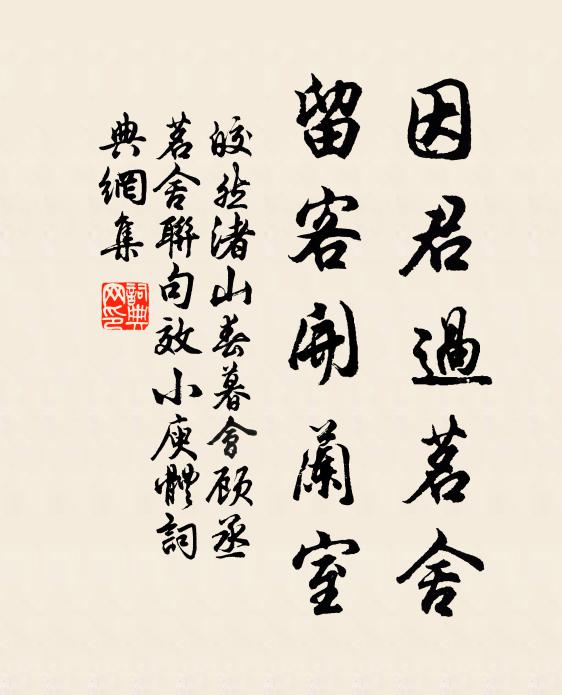 因君過茗舍
留客開蘭室
皎然渚山春暮會顧丞
茗舍聯句效小庾體詞
典網集
詞典
网印